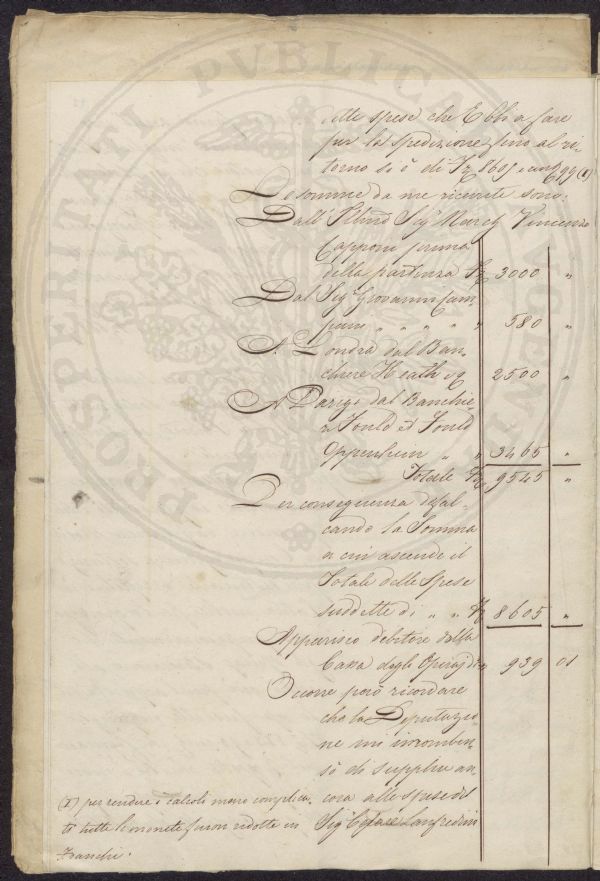 alle spese che Ebbi a fare
per la spedizione, fino al ri-
torno si è di Fr. 8605, cent. 99 (1)
Le somme da me ricevute sono:
Dall' Illmo Sigr March Vincenzo
Capponi prima
della partenza Fr. 3000 "
Dal Sigr Giovanni Cam-
pani " " " " " 580 "
A Londra dal Ban-
chiere Heath 2500 "
A Parigi dal Banchie-
re Fould et Fould
Oppenheim " " 3465 "
Totale Fr. 9545 "
Per conseguenza defal-
cando la Somma
a cui ascende il
Totale delle Spese
suddette di " " Fr. 8605 "
Apparisco debitore della
Cassa degli Operaj di 939 01
Occorre però ricordare
che la Deputazio-
ne mi incomben-
sò di supplire an-
cora alle spese del
Sig Cesare Lanfredini
(1) per rendere i calcoli meno complica-
ti tutte le monete furon ridotte in
Franchi.
PROSPERITATI PUBLICAE